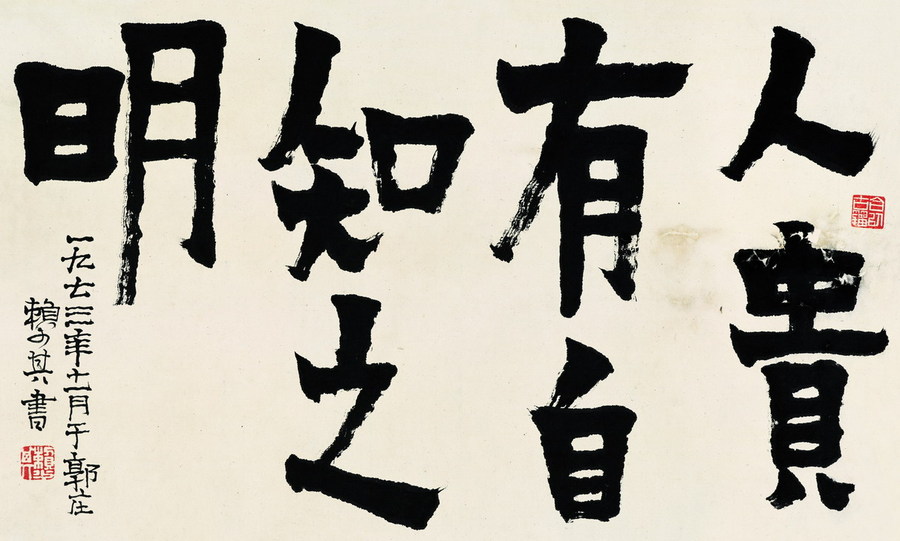 人貴
有自
知之
明
一九七三年十一月于郭庄
賴少其書